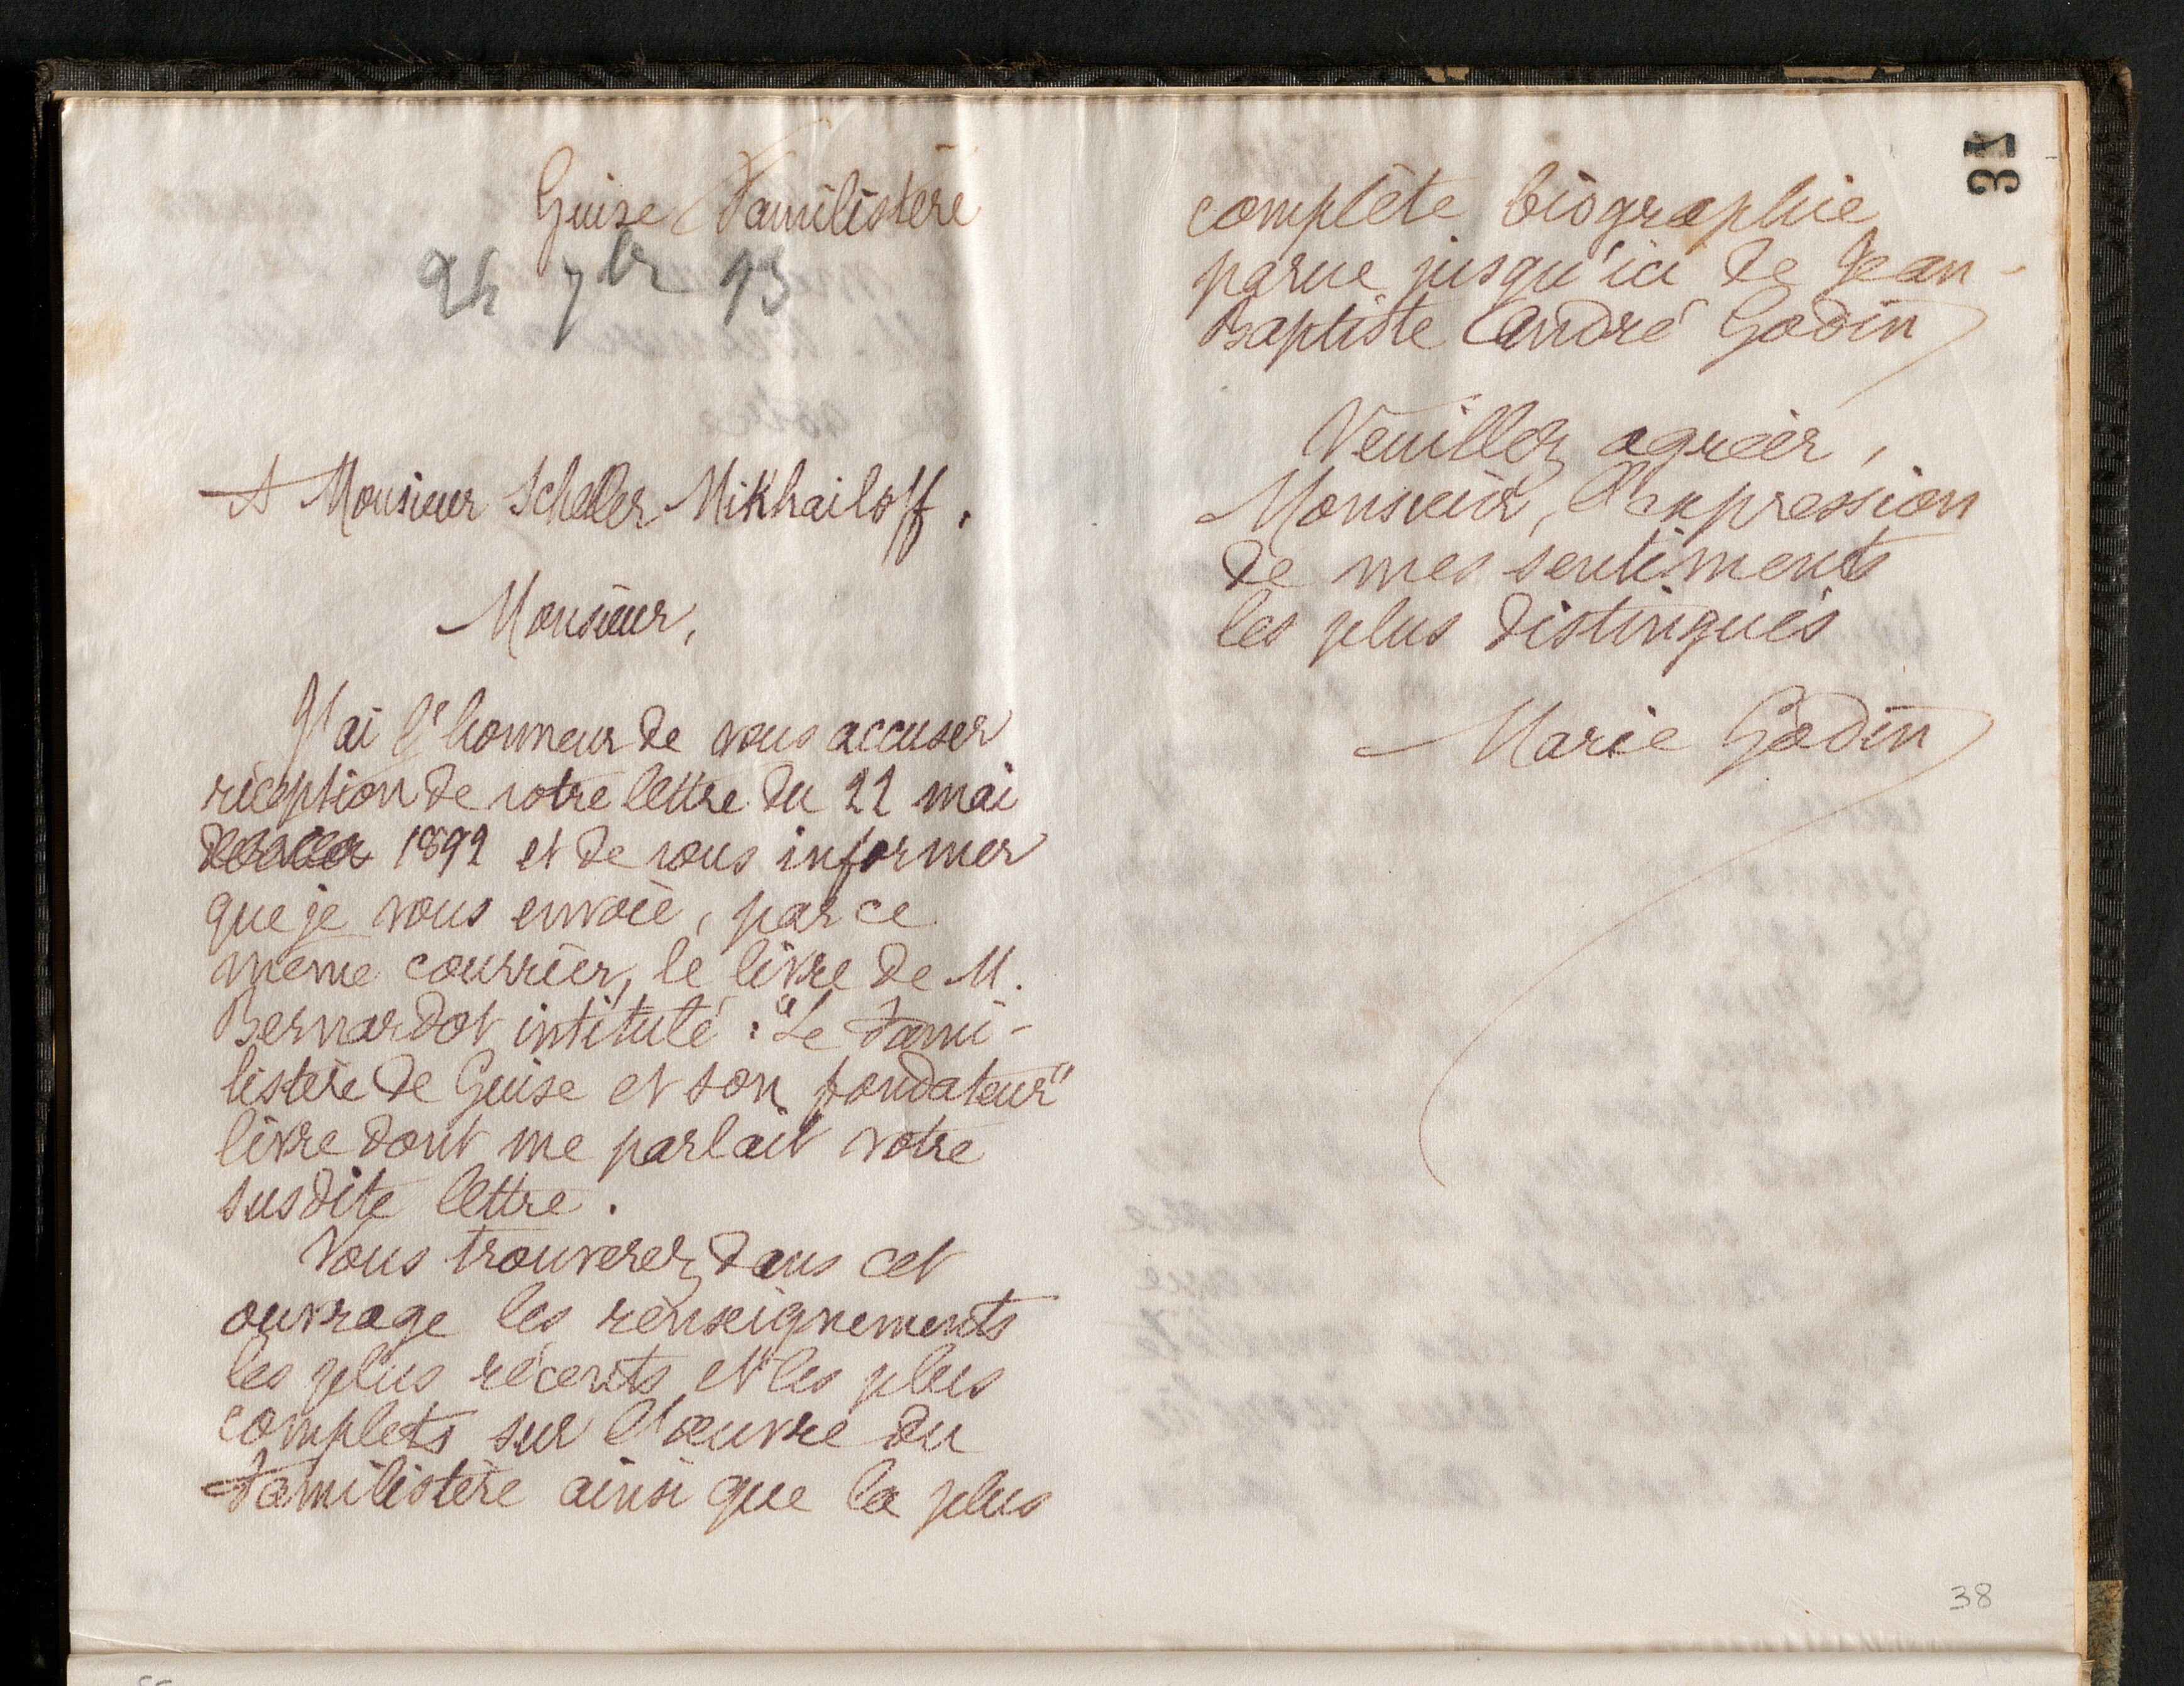 Guise Familistère
24 7br 93
A Monsieur Scheller-Mikhailoff.
Monsieur,
J'ai l'honneur de vous accuser
réception de votre lettre du 22 mai
1892 et de vous informer
que je vous envoie, par ce
même courrier, le livre de M.
Bernardot intitulé : "Le Fami-
listère de Guise et son fondateur"
livre dont me parlait votre
susdite lettre.
Vous trouverez dans cet
ouvrage les renseignements
les plus récents et les plus
complets sur l'œuvre du
Familistère ainsi que la plus
complète biographie
parue jusqu'ici de Jean-
Baptiste André Godin
Veuillez agréer,
Monsieur, l'expression
de mes sentiments
les plus distingués
Marie Godin
38